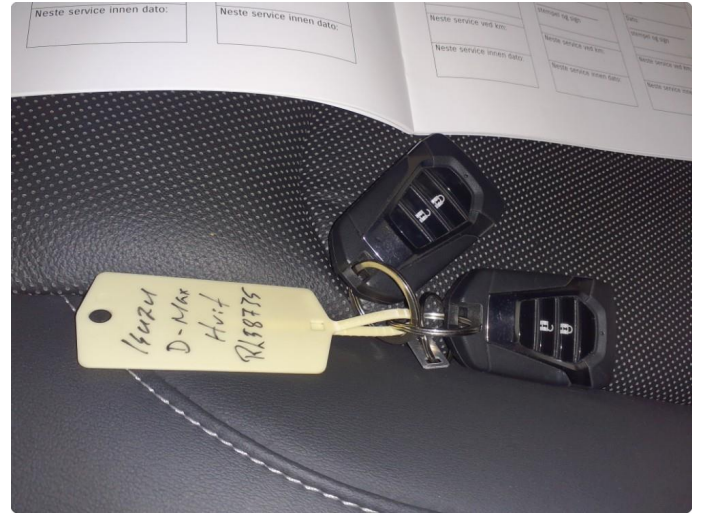 Neste service innen dato:
Neste service innen dato:
Neste service ved km:
Neste service innen dato:
Stempel og sign
Neste service ved km:
Neste service innen dato:
Dato:
Stempel og sign
Neste service ved km:
Neste service innen
Isuzu
D-Max
Hvit